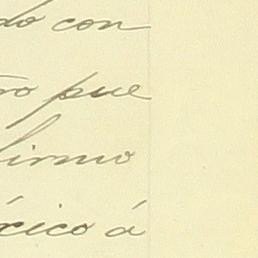 do con
ro pue
firmo
xico á